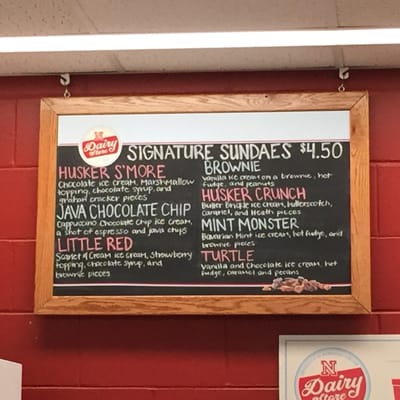 N
Dairy
Store
SIGNATURE SUNDAES $4.50
HUSKER S'MORE
Chocolate ice cream, Marshmallow
topping, chocolate syrup, and
graham cracker pieces
JAVA CHOCOLATE CHIP
Cappuccino Chocolate Chip ice cream,
a shot of espresso and java chips
LITTLE RED
Scarlet & Cream ice cream, strawberry
topping, chocolate syrup, and
brownie pieces
BROWNIE
Vanilla ice cream on a brownie, hot
fudge, and peanuts
HUSKER CRUNCH
Butter Brickle ice cream, butterscotch,
caramel, and Heath pieces
MINT MONSTER
Bavarian Mint ice cream, hot fudge, and
brownie pieces
TURTLE
Vanilla and chocolate ice cream, hot
fudge, caramel and pecans
N
Dairy
Store